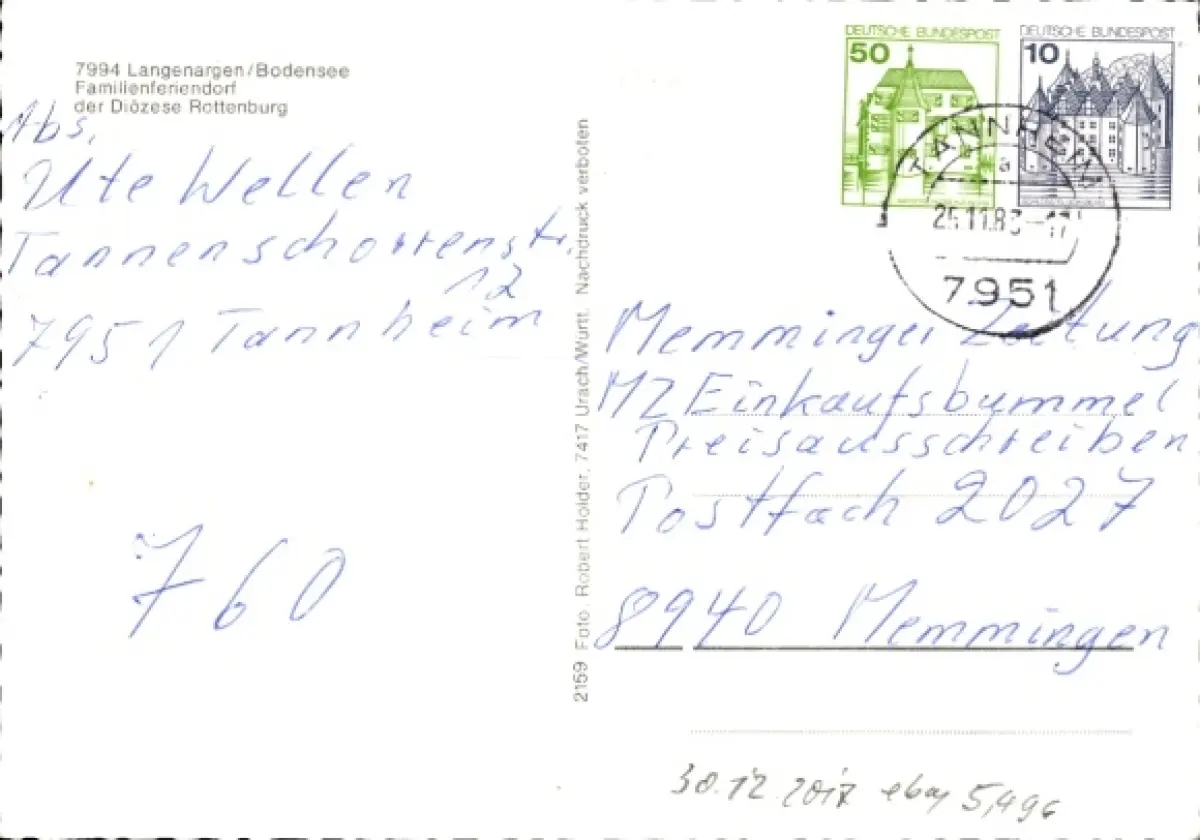 7994 Langenargen/Bodensee
Familienferiendorf
der Diözese Rottenburg
Abs.
Ute Wellen
Tannenschorrenstr.
12
7951 Tannheim
760
2159 Foto. Robert Holder, 7417 Urach/Württ. Nachdruck verboten
DEUTSCHE BUNDESPOST
50
DEUTSCHE BUNDESPOST
10
TANNHEIM
a
25.11.83
7951
Memminger Zeitung
MZ Einkaufsbummel
Preisausschreiben
Postfach 2027
8940 Memmingen
30.12.2017 ebay 5,49€